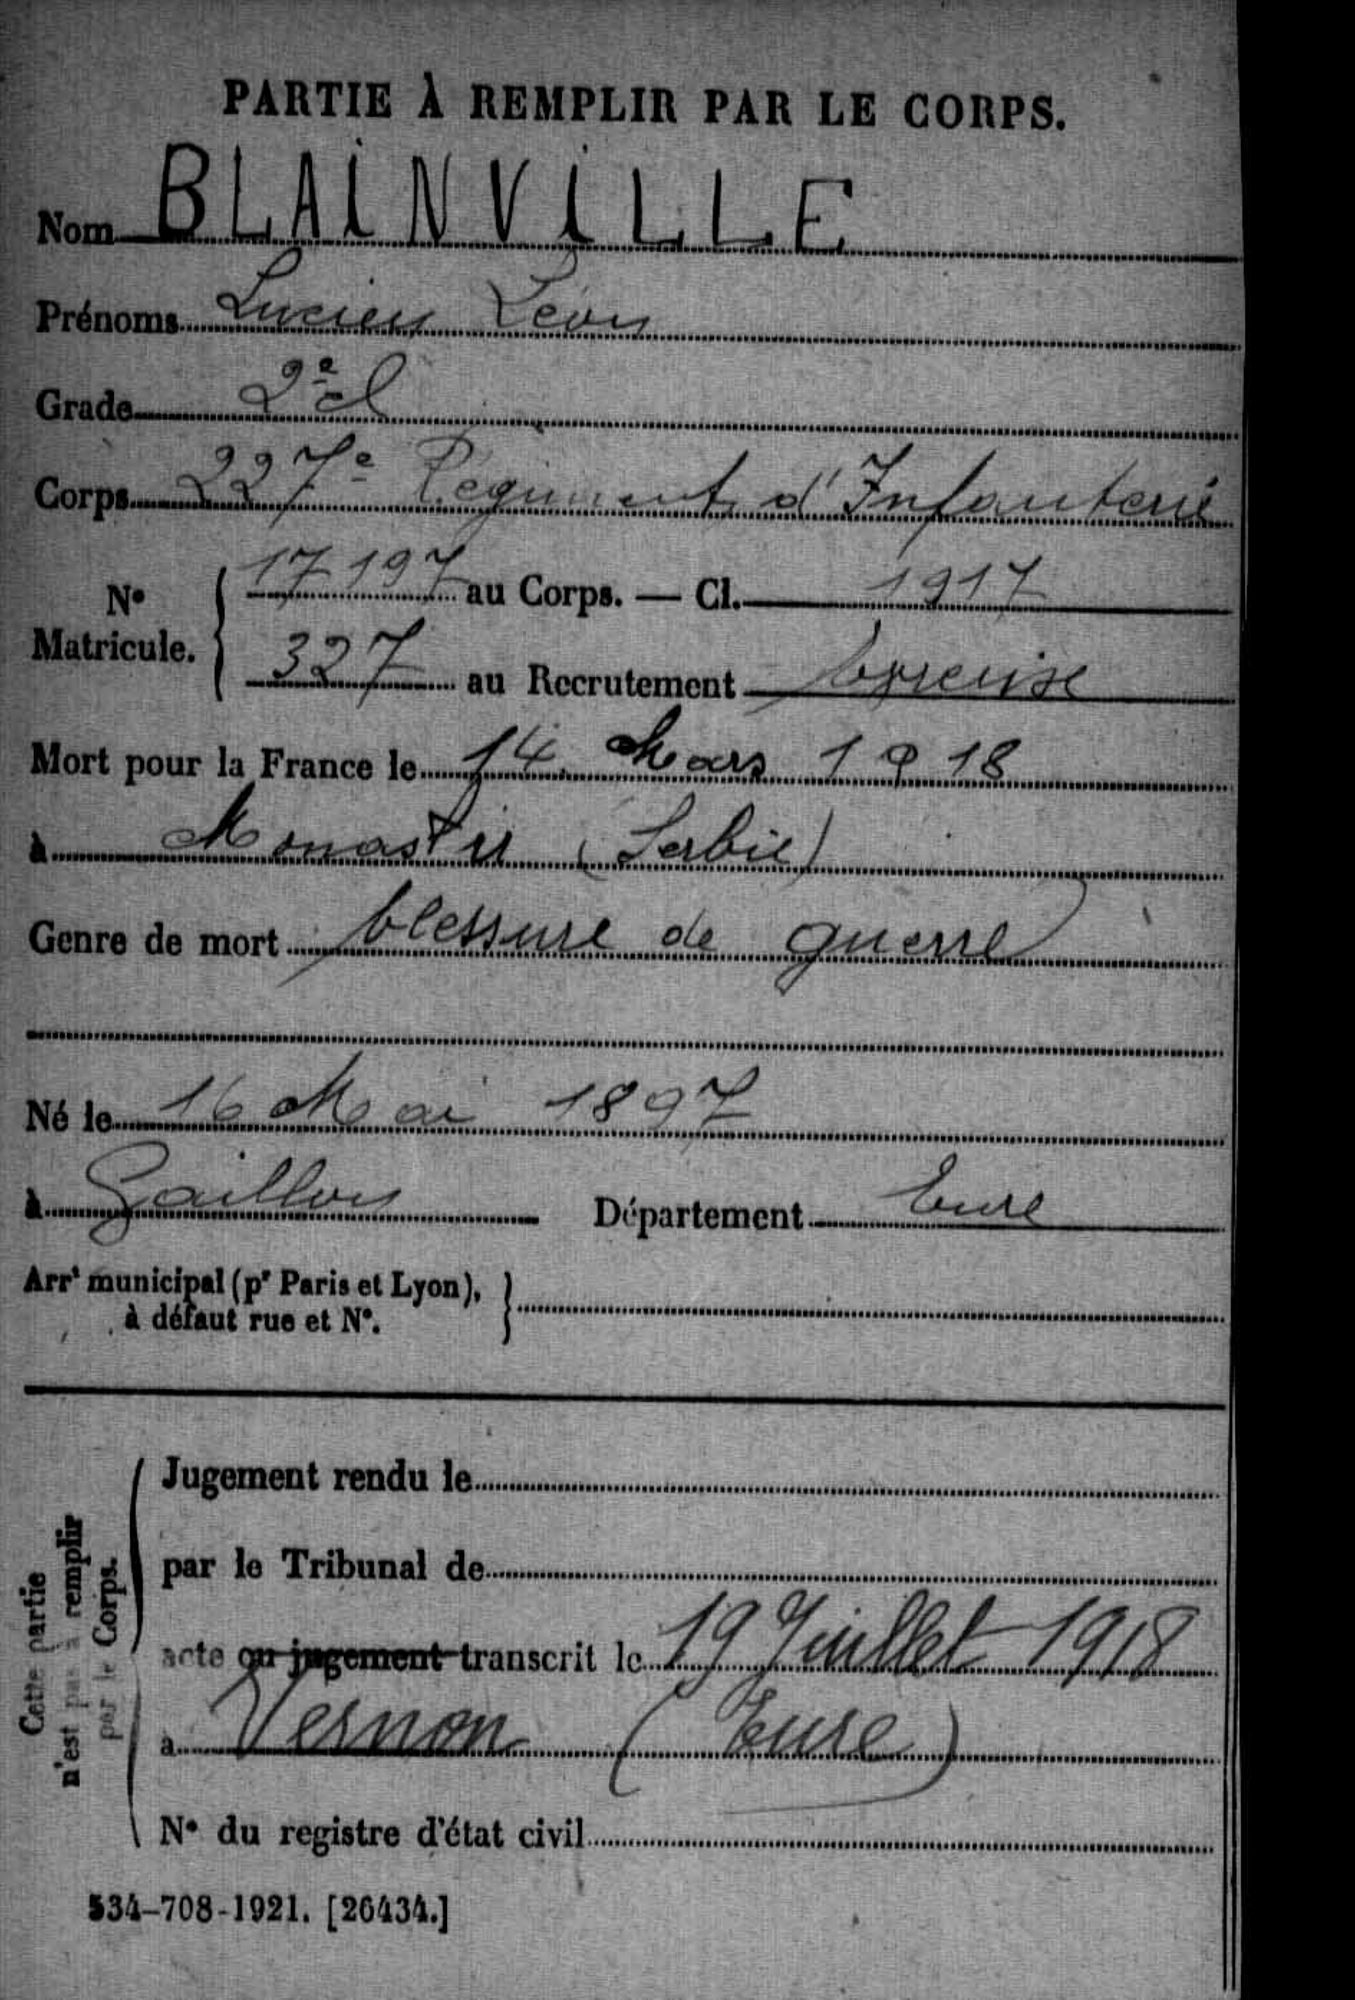 PARTIE À REMPLIR PAR LE CORPS.
Nom BLAINVILLE
Prénoms Lucien Léon
Grade 2e cl
Corps 227e Régiment d'Infanterie
N° Matricule. { 17197 au Corps. — Cl. 1917
327 au Recrutement
Mort pour la France le 14 Mars 1918
à Monastir (Serbie)
Genre de mort blessure de guerre
Né le 16 Mai 1897
à Gaillon Département Eure
Arrt municipal (pr Paris et Lyon), }
à défaut rue et N°.
Cette partie
n'est pas à remplir
par le Corps.
Jugement rendu le
par le Tribunal de
acte ou jugement transcrit le 19 Juillet 1918
à Vernon (Eure)
N° du registre d'état civil
534-708-1921. [26434.]